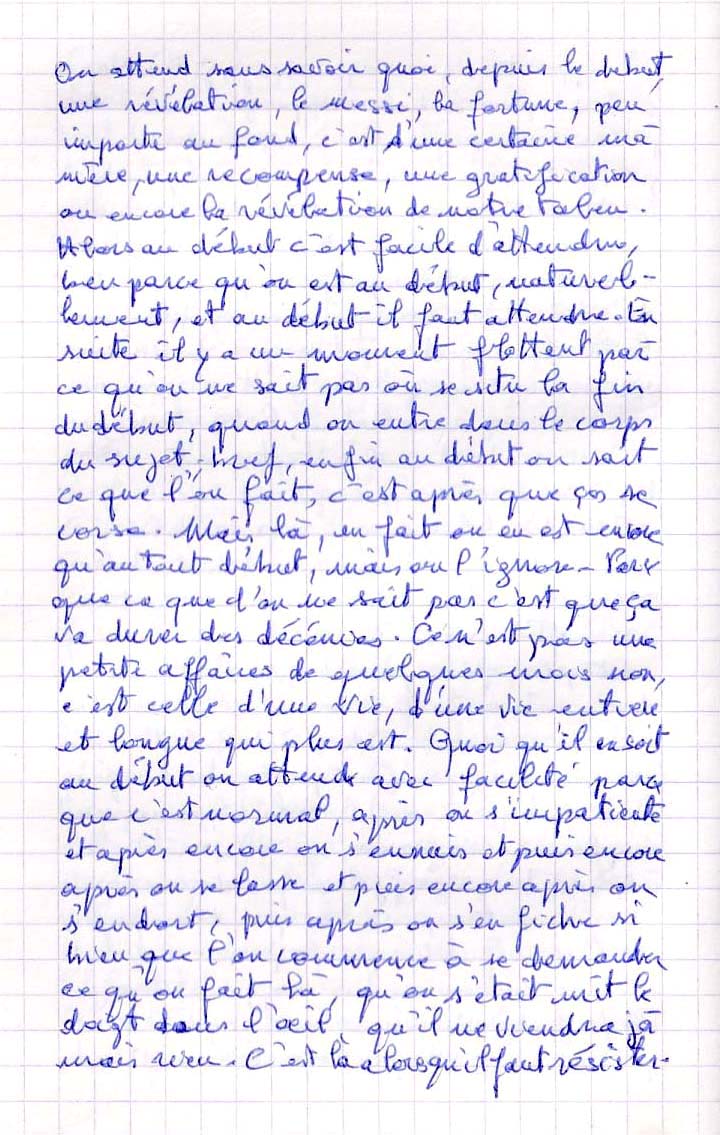 On attend sans savoir quoi, depuis le debut,
une révélation, le messi, la fortune, peu
importe au fond, c'est d'une certaine ma
nière, une recompense, une gratification
ou encore la révélation de notre talen.
Alors au début c'est facile d'attendre,
bien parce qu'on est au début, naturel-
lement, et au début il faut attendre. En
suite il y a un moment flottent par
ce qu'on ne sait pas où se situ la fin
du début, quand on entre dans le corps
du sujet, bref, enfin au début on sait
ce que l'on fait, c'est après que ças se
corse. Mais là, en fait on en est encore
qu'au tout début, mais on l'ignore. Parce
que ce que l'on ne sait pas c'est que ça
va durer des décénies. Ce n'est pas une
petite affaires de quelques mois non,
c'est celle d'une vie, d'une vie entière
et longue qui plus est. Quoi qu'il en soit
au début on attend avec facilité parce
que c'est normal, après on s'impatiente
et après encore on s'ennuis et puis encore
après on se lasse et puis encore après on
s'endort, puis après on s'en fiche si
bien que l'on commence à se demander
ce qu'on fait là, qu'on s'était mit le
doigt dans l'oeil, qu'il ne viendra ja
mais rien. C'est là alors qu'il faut résister.